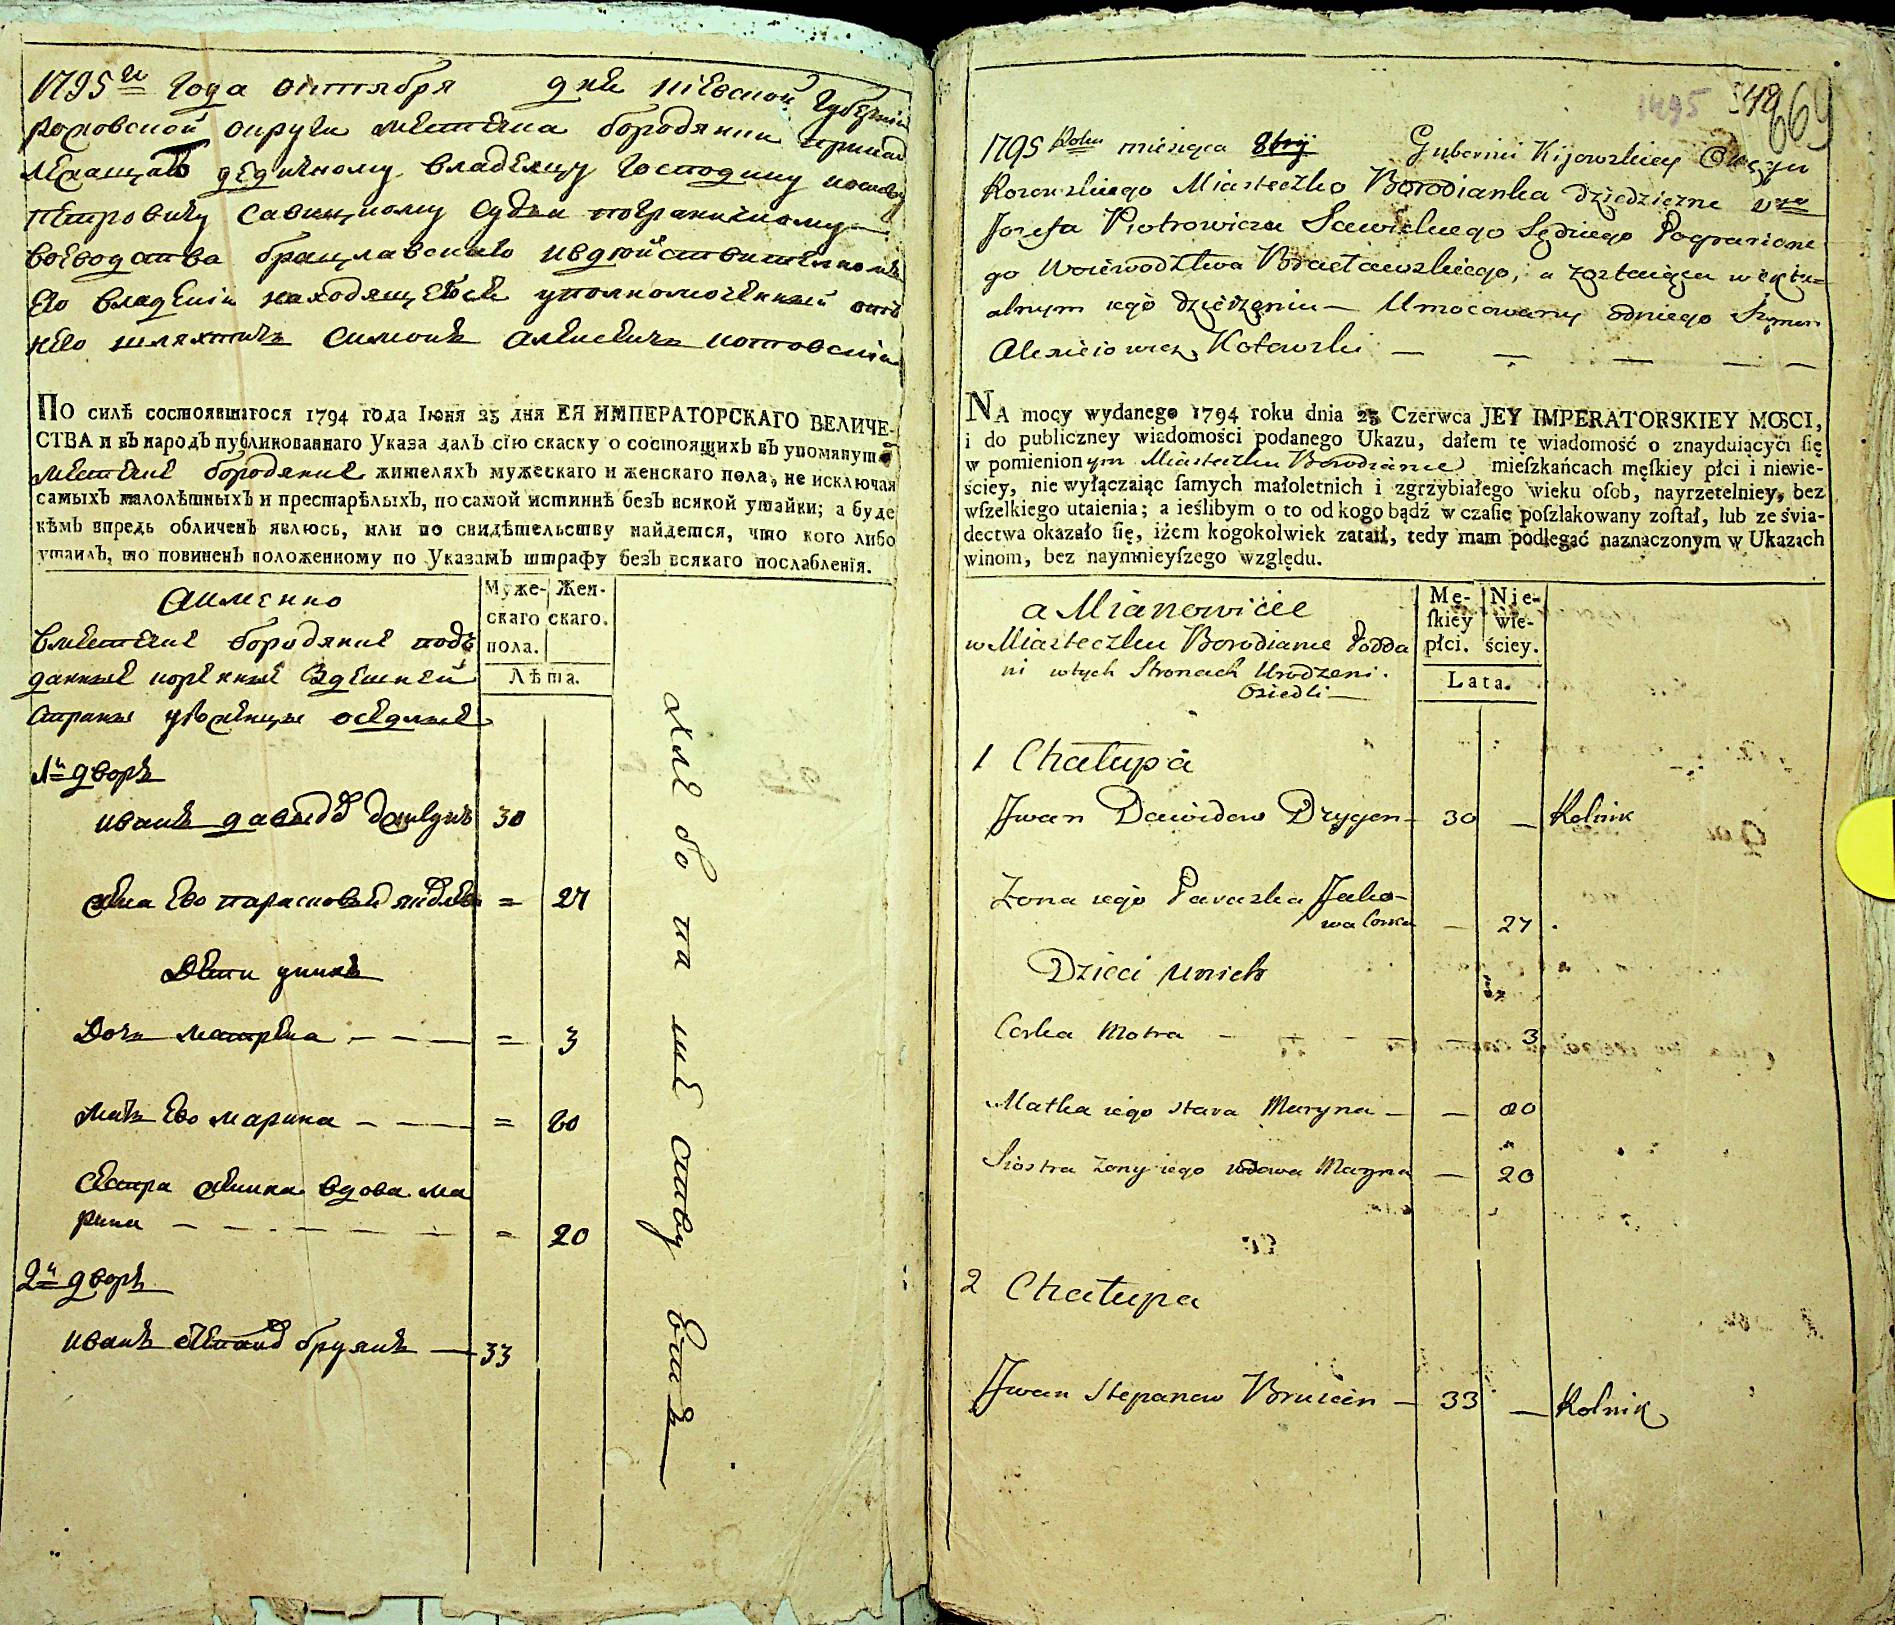 1795й года октября дня Киевской Губернии
округи местечка бородянки принад
лежащаго дедичному владелцу Господину
Петровичу Савицкому Судьи пограничному
воеводства брацлавского
его владении находящейся уполномоченный отъ
него шляхтичъ Симонъ Алексиевичъ Котовский
По силѣ состоявшагося 1794 года Іюня 23 дня ЕЯ ИМПЕРАТОРСКАГО ВЕЛИЧЕ-
СТВА и въ народъ публикованнаго Указа далъ сію скаску о состоящихъ въ упомянут
местечке бородянке жителяхъ мужескаго и женскаго пола, не исключая
самыхъ малолѣтныхъ и престарѣлыхъ, по самой истиннѣ безъ всякой утайки; а буде
кѣмъ впредь обличенъ явлюсь, или по свидѣтельству найдется, что кого либо
утаилъ, то повиненъ положенному по Указамъ штрафу безъ всякаго послабленія.
Муже- Жен-
скаго скаго.
пола.
Лѣта.
Аименно
вместечке бородянке подъ
данные здешней
страны уроженцы оседлые
1й дворъ
иванъ давыдов 30
жена Ево парасковья = 27
Дети унихъ
Дочь матрена - - - = 3
Мать Ево марина - - - = 80
Сестра жинки вдова ма
рина - - - - - = 20
2й дворъ
иванъ степанов 33
1495 348 669
1795 Roku miesiąca 8bry Gubernii Kijowskiey Okręgu
Miasteczko Borodianka dziedziczne
Jozefa Piotrowicza Sawickiego Sędziego Pogranicne
go Woiewodztwa Bracławskiego, a zostaiąca w ektu=
alnym iego dzierzeniu — Umocowany odniego Szymon
Alexieiowicz Kotowski — — — — —
NA mocy wydanego 1794 roku dnia 23 Czerwca JEY IMPERATORSKIEY MOSCI,
i do publiczney wiadomości podanego Ukazu, dałem tę wiadomość o znayduiących się
w pomienionym Miasteczku Borodiance mieſzkańcach męſkiey płci i niewie-
ściey, nie wyłączaiąc ſamych małoletnich i zgrzybiałego wieku oſob, nayrzetelniey, bez
wſzelkiego utaienia; a ieślibym o to od kogo bądź w czaſie poſzlakowany zoſtał, lub ze świa-
dectwa okazało ſię, iżem kogokolwiek zataił, tedy mam podlegać naznaczonym w Ukazach
winom, bez naymnieyſzego względu.
Mę- Nie-
ſkiey wie-
płci. ściey.
Lata.
a Mianowicie
w Miasteczku Borodiance Podda
ni wtych Stronach Urodzeni.
Osiedli —
1 Chałupa
Jwan Dawidow 30 — Rolnik
Zona iego Paraska Jako-
wa Corka — 27
Dzieci unich
Corka Motra - - - 3
Matka iego stara Maryna — — 80
Siostra zony iego wdowa Maryna — 20
2 Chałupa
Jwan Stepanow — 33 — Rolnik